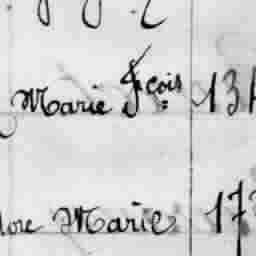 Marie Fcois 13
dore Marie 17